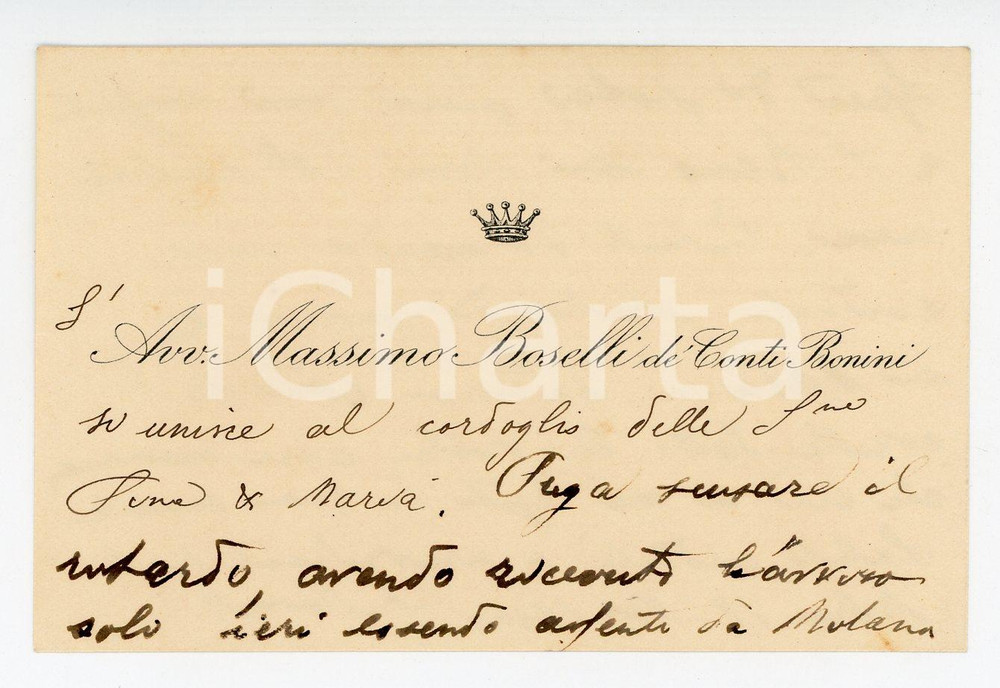 L'
Avv. Massimo Boselli de' Conti Bonini
si unisce al cordoglio delle S.ne
Pina & Maria. Prega scusare il
ritardo, avendo ricevuto l'avviso
solo ieri essendo assente da Milano
iCharta